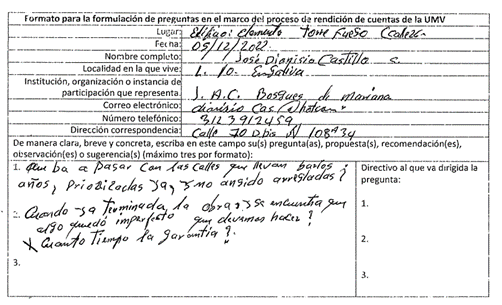 Formato para la formulación de preguntas en el marco del proceso de rendición de cuentas de la UMV
Lugar: Edificio elemento Torre Fuego
Fecha: 05/12/2022
Nombre completo: José Dionisio Castillo
Localidad en la que vive: L. 10. Engativa
Institución, organización o instancia de
participación que representa. J. A. C. Bosques de Mariana
Correo electrónico:
Número telefónico: 3123912459
Dirección correspondencia: Calle 70 D bis N 108A34
De manera clara, breve y concreta, escriba en este campo su(s) pregunta(as), propuesta(s), recomendación(es),
observación(es) o sugerencia(s) (máximo tres por formato):
Directivo al que va dirigida la
pregunta:
1. Que ba a pasar con las calles que llevan barios
años, Priorizadas ya, y no an sido arregladas?
1.
2. Cuando ya terminada la obra, y se encuentra que
algo quedó imperfecto que devemos hacer?
2.
X Cuanto Tiempo la garantia?
3.
3.